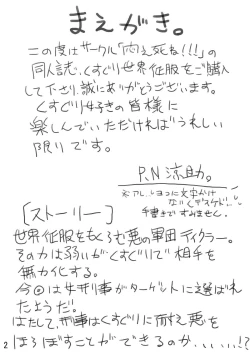 まえがき。
この度はサークル「悶え死ね!!!」の
同人誌、くすぐり世界征服をご購入
して下さり、誠にありがとうございます。
くすぐり好きの皆様に
楽しんでいただければうれしい
限りです。
P.N 涼助。
手書きですみません。
[ストーリー]
世界征服をもくろむ悪の軍団ティクラー。
その力は弱いがくすぐりで相手を
無力化する。
今回は女刑事がターゲットに選ばれ
たようだ。
はたして、刑事はくすぐりに耐え悪を
ほろぼすことができるのか、、、、!?
2